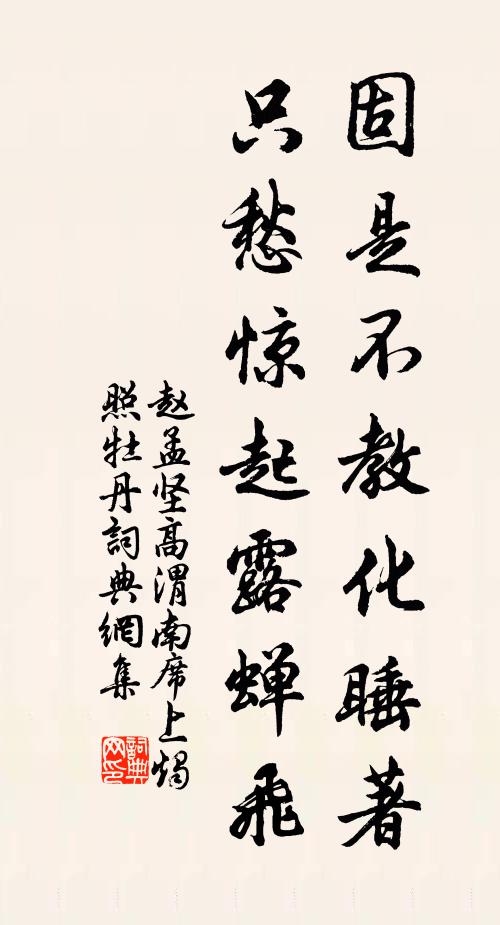 固是不教化睡著
只愁惊起露蝉飛
赵孟坚高渭南席上烛
照牡丹詞典網集
詞典